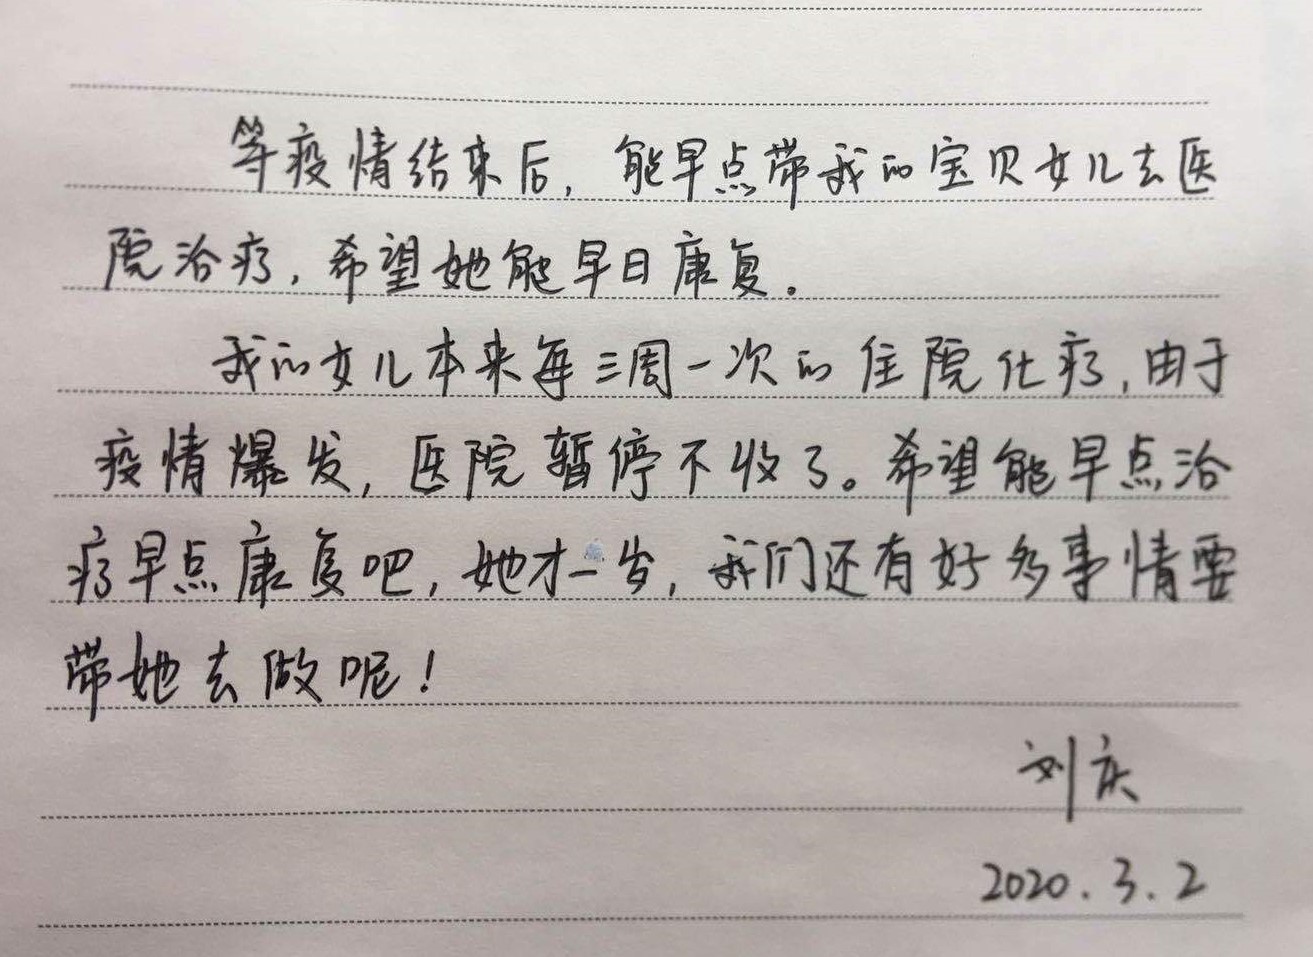 等疫情结束后，能早点带我的宝贝女儿去医
院治疗，希望她能早日康复。
我的女儿本来每三周一次的住院化疗，由于
疫情爆发，医院暂停不收了。希望能早点治
疗早点康复吧，她才一岁，我们还有好多事情要
带她去做呢！
刘庆
2020.3.2